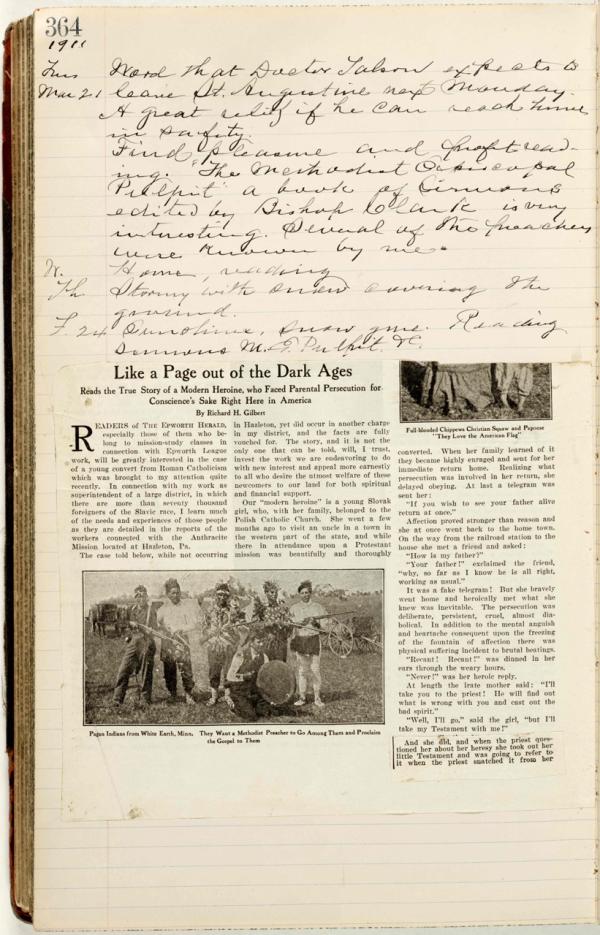 364
1911
Tues Word that Doctor Talson expects to
Mar 21 leave St. Augustine next Monday.
A great relief if he can reach home
in safity.
Find pleasure and profit read-
ing. "The Methodist Episcopal
Pulpit" a book of Sermons
edited by Bishop Clark is very
interesting. Several of the preachers
were known by me.
W. Home, reading
Th Stormy with snow covering the
ground.
F. 24 Sunshine, snow gone. Reading
Sermons M. E. Pulpit &c.
Like a Page out of the Dark Ages
Reads the True Story of a Modern Heroine, who Faced Parental Persecution for
Conscience's Sake Right Here in America
By Richard H. Gilbert
READERS of THE EPWORTH HERALD,
especially those of them who be-
long to mission-study classes in
connection with Epworth League
work, will be greatly interested in the case
of a young convert from Roman Catholicism
which was brought to my attention quite
recently. In connection with my work as
superintendent of a large district, in which
there are more than seventy thousand
foreigners of the Slavic race, I learn much
of the needs and experiences of those people
as they are detailed in the reports of the
workers connected with the Anthracite
Mission located at Hazleton, Pa.
The case told below, while not occurring
in Hazleton, yet did occur in another charge
in my district, and the facts are fully
vouched for. The story, and it is not the
only one that can be told, will, I trust,
invest the work we are endeavoring to do
with new interest and appeal more earnestly
to all who desire the utmost welfare of these
newcomers to our land for both spiritual
and financial support.
Our "modern heroine" is a young Slovak
girl, who, with her family, belonged to the
Polish Catholic Church. She went a few
months ago to visit an uncle in a town in
the western part of the state, and while
there in attendance upon a Protestant
mission was beautifully and thoroughly
Pagan Indians from White Earth, Minn. They Want a Methodist Preacher to Go Among Them and Proclaim
the Gospel to Them
Full-blooded Chippewa Christian Squaw and Papoose
"They Love the American Flag"
converted. When her family learned of it
they became highly enraged and sent for her
immediate return home. Realizing what
persecution was involved in her return, she
delayed obeying. At last a telegram was
sent her:
"If you wish to see your father alive
return at once."
Affection proved stronger than reason and
she at once went back to the home town.
On the way from the railroad station to the
house she met a friend and asked:
"How is my father?"
"Your father!" exclaimed the friend,
"why, so far as I know he is all right,
working as usual."
It was a fake telegram! But she bravely
went home and heroically met what she
knew was inevitable. The persecution was
deliberate, persistent, cruel, almost dia-
bolical. In addition to the mental anguish
and heartache consequent upon the freezing
of the fountain of affection there was
physical suffering incident to brutal beatings.
"Recant! Recant!" was dinned in her
ears through the weary hours.
"Never!" was her heroic reply.
At length the irate mother said: "I'll
take you to the priest! He will find out
what is wrong with you and cast out the
bad spirit."
"Well, I'll go," said the girl, "but I'll
take my Testament with me!"
And she did, and when the priest ques-
tioned her about her heresy she took out her
little Testament and was going to refer to
it when the priest snatched it from her